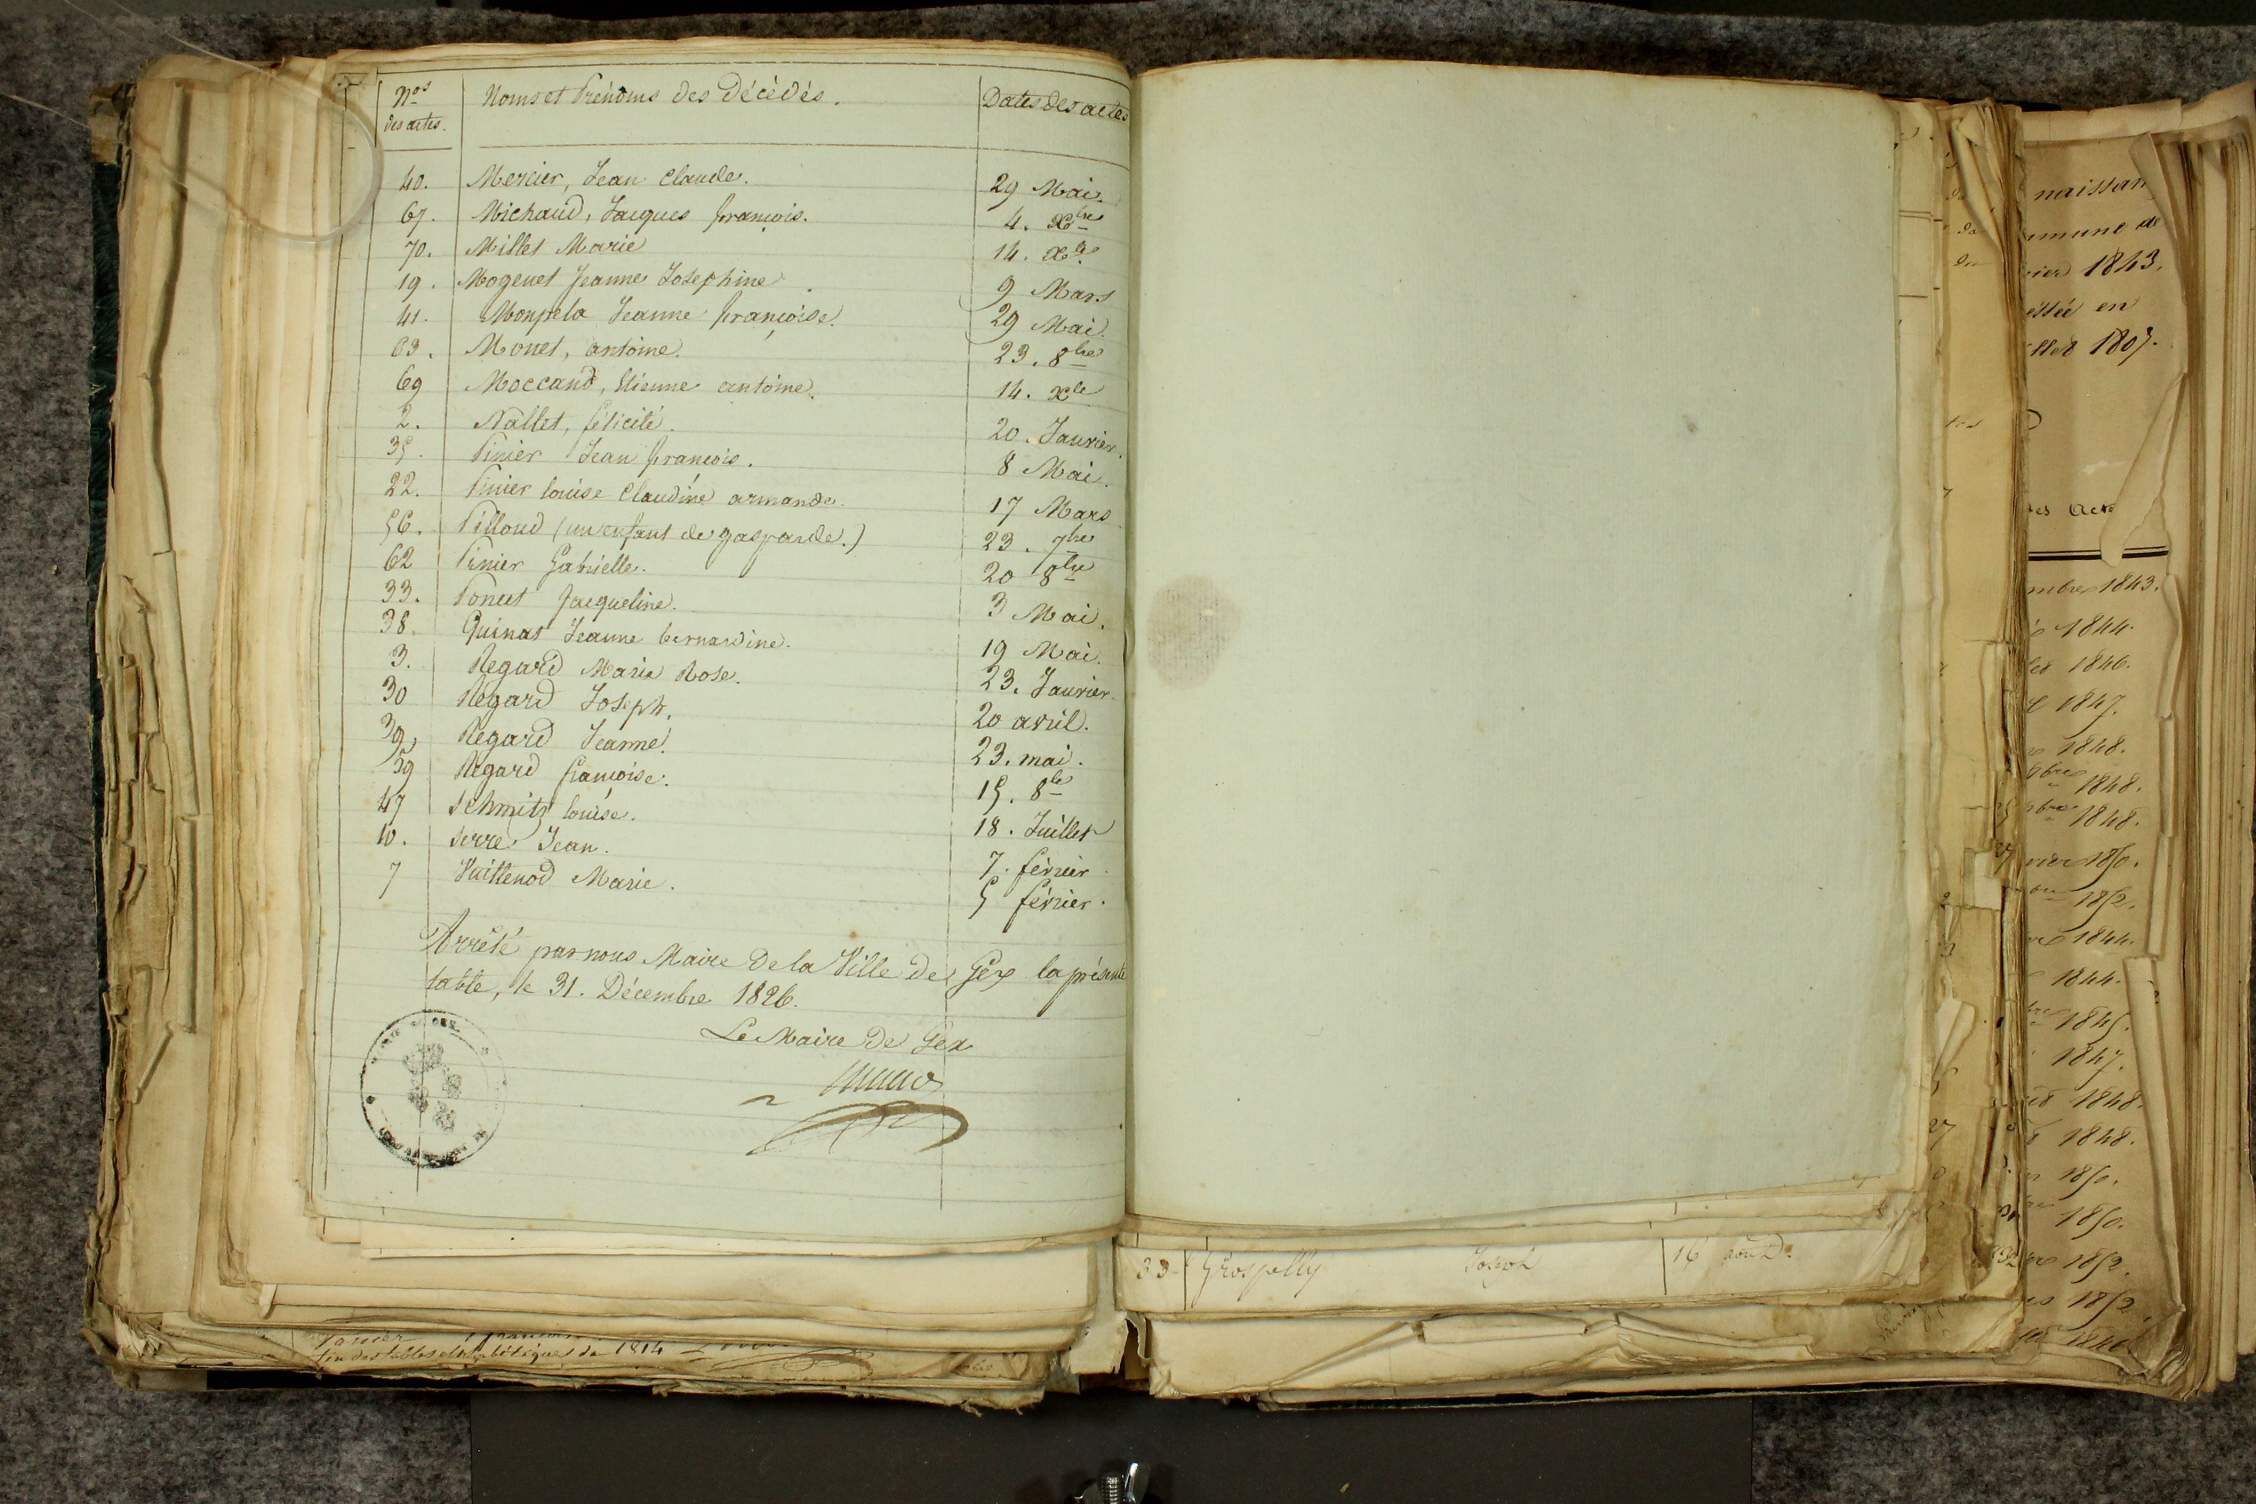 Nos des actes. Noms et Prénoms des Décédés. Dates des actes
40. Mercier, Jean Claude. 29 Mai.
67. Michaud, Jacques françois. 4. Xbre
70. Millet Marie 14. Xbre
19. Mogenet Jeanne Josephine. 9 Mars
41. Monpela Jeanne françoise. 29 Mai.
63. Monet, antoine. 23. 8bre
69 Moccand, Etienne antoine. 14. Xbre
2. Nallet, félicité. 20. Janvier.
35. Pinier Jean françois. 8 Mai.
22. Pinier louise Claudine armande. 17 Mars
56. Pilloud (un enfant de gasparde.) 23. 7bre
62 Pinier Gabrielle. 20 8bre
33. Poncet Jacqueline. 3 Mai.
38. Quinat Jeanne bernardine. 19 Mai.
3. Regard Marie Rose. 23. Janvier.
30 Regard Joseph. 20 avril.
39, Regard Jeanne. 23. mai.
59 Regard françoise. 15. 8bre
47 Schmitz louise. 18. Juillet
10. Serre Jean. 7. février
7 Vuittenod Marie. 5 février.
Arrêté par nous Maire de la Ville de Gex la présente
table, le 31. Décembre 1826.
Le Maire de Gex
33 Grospelly Joseph 16
fin des tables alphabétiques de 1814
naissan
mmune de
1843.
en
1807.
des Acte
mbre 1843.
1844.
1846.
1847.
1848.
9bre 1848.
1848.
1850.
1852.
1844.
1844.
1845.
1847.
1848.
1848.
1850.
1850.
1852.
1852